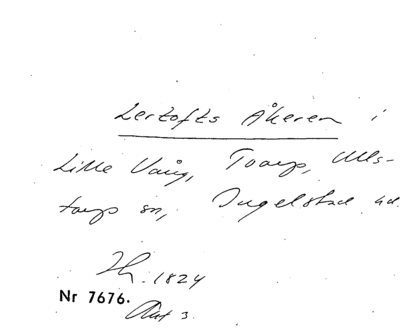 Lertofts Åkeren i
Lille Vång, Toarp, Ulls-
torps sn, Ingelstad hd.
Th. 1824
Nr 7676.
Akt 3.